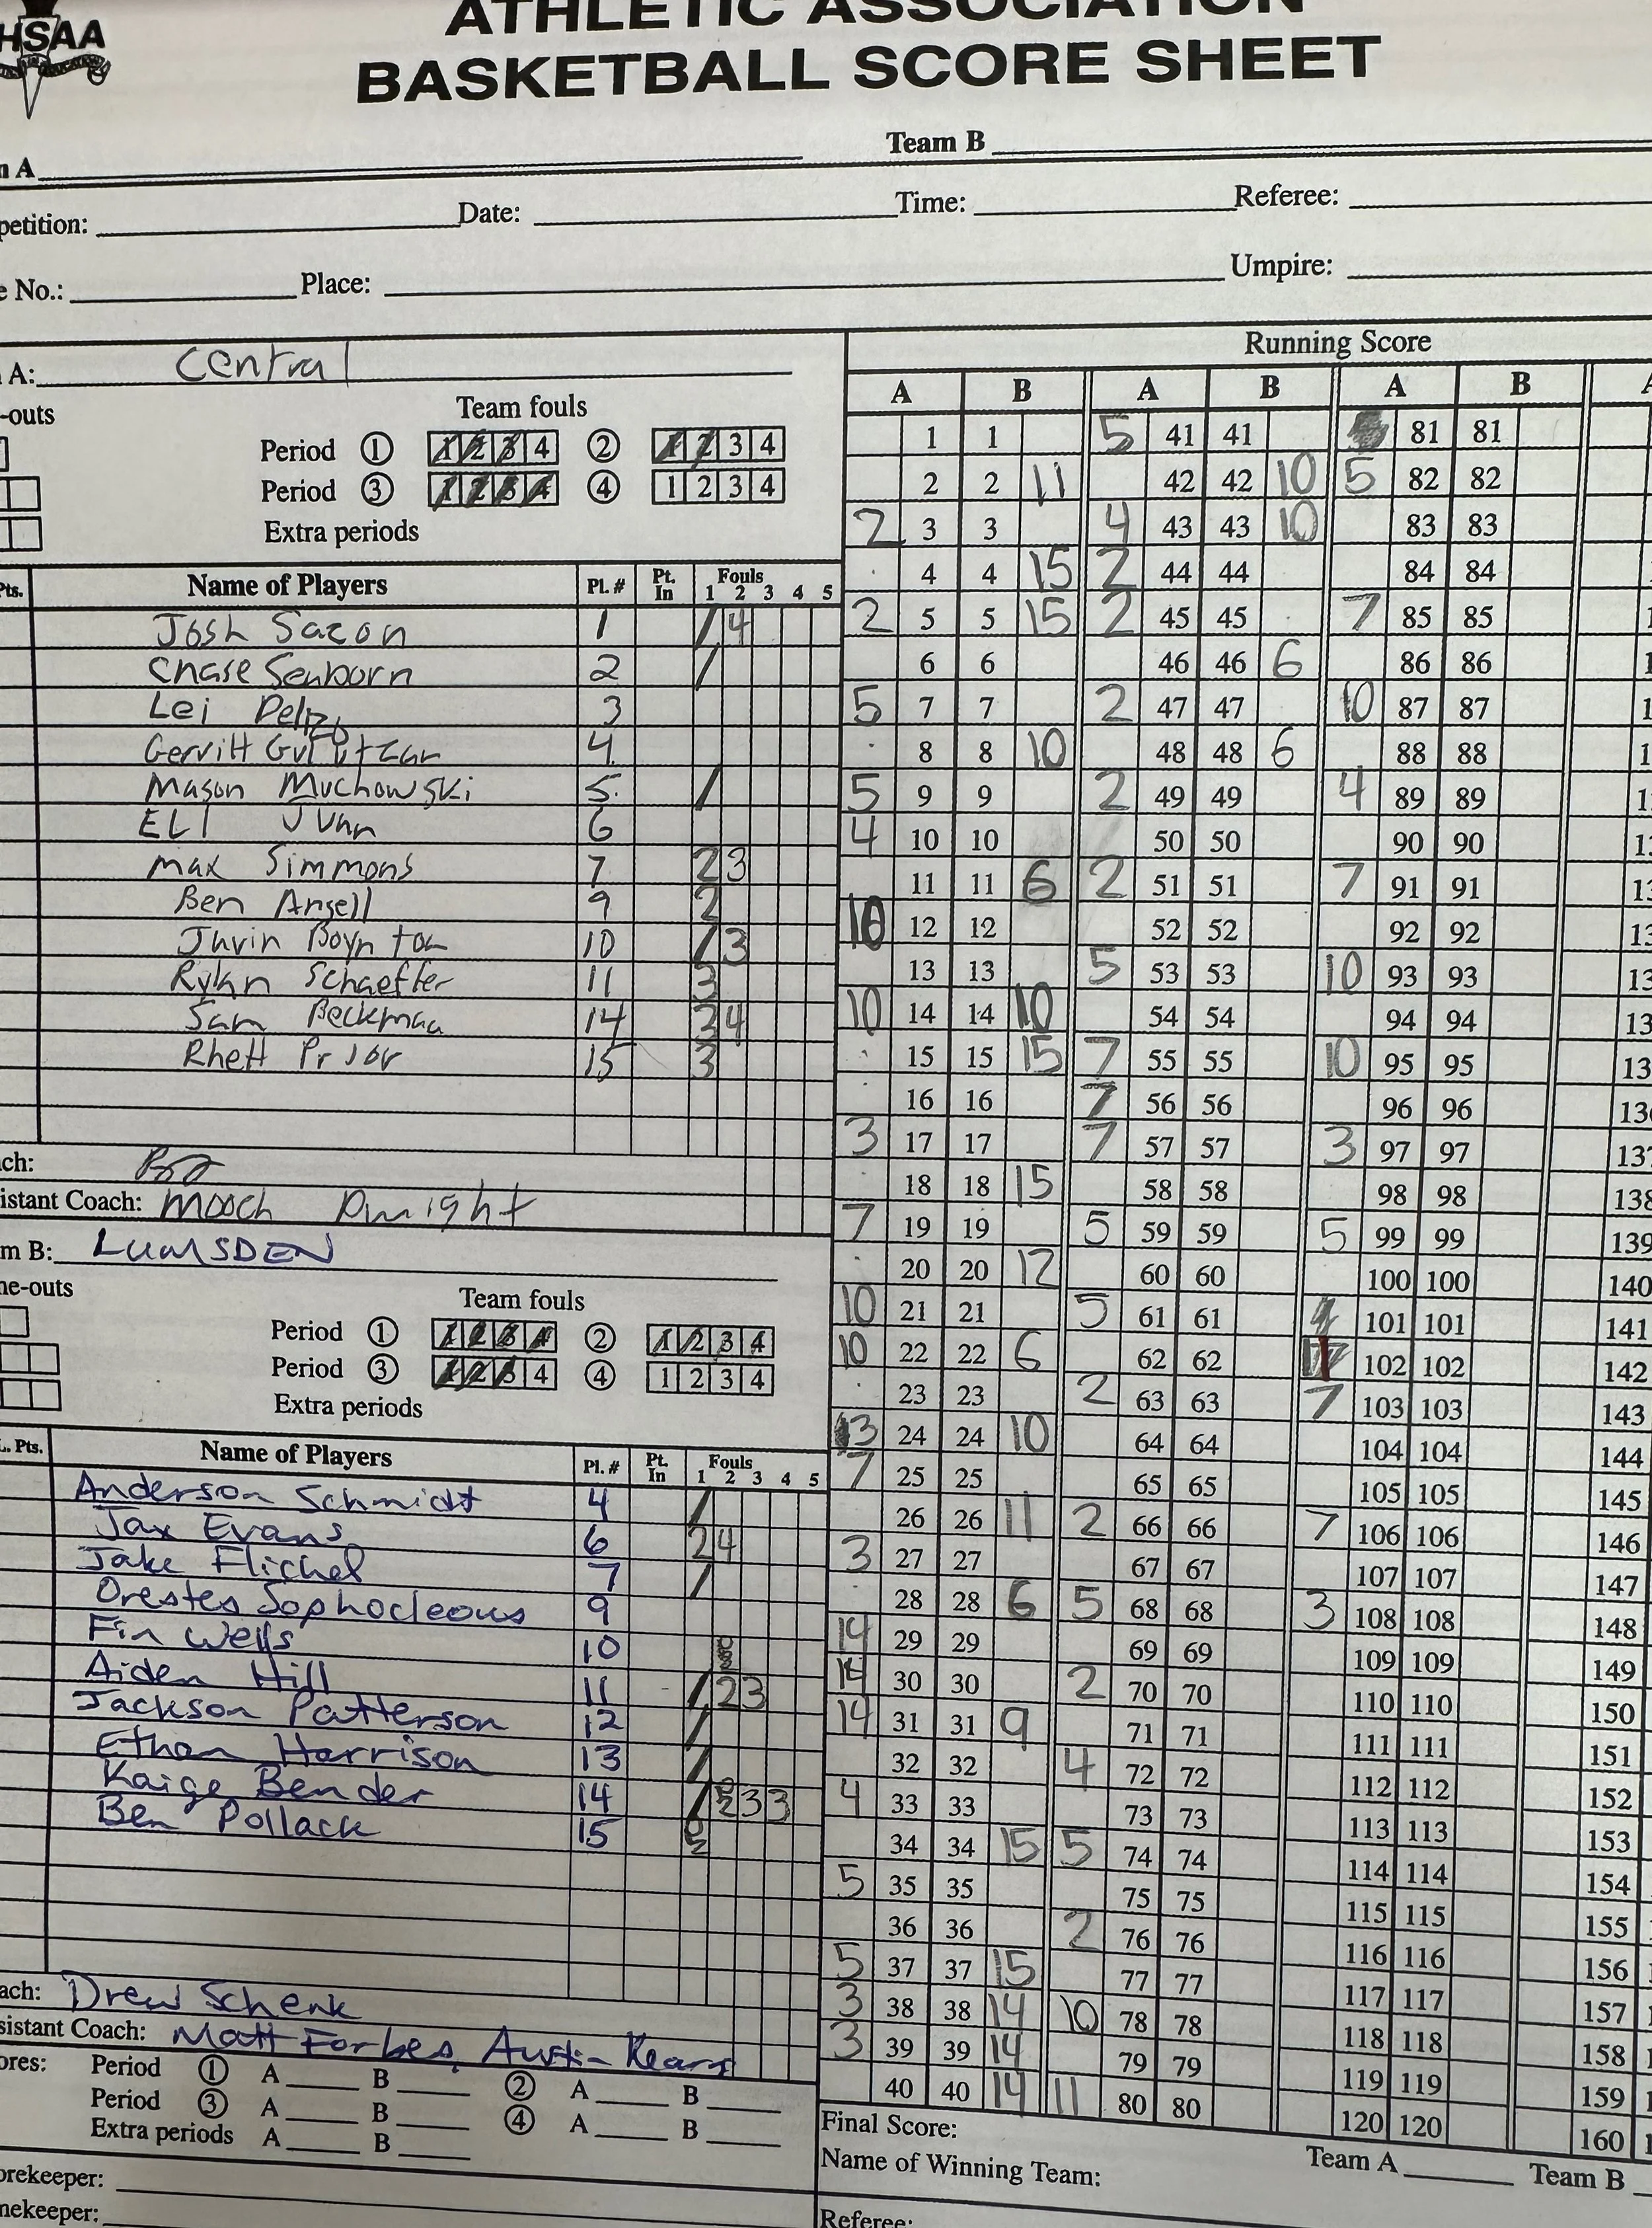 HSAA
ATHLETIC ASSOCIATION
BASKETBALL SCORE SHEET
A Team B
petition: Date: Time: Referee:
No.: Place: Umpire:
A: Central
-outs Team fouls
Period ① 1 2 3 4 ② 1 2 3 4
Period ③ 1 2 3 4 ④ 1 2 3 4
Extra periods
Pts. Name of Players Pl. # Pt. In Fouls 1 2 3 4 5
Josh Sazon 1 / 4
Chase Senborn 2 /
Lei 3
Gervitt 4
Mason Muchowski 5 /
6
Max Simmons 7 2 3
Ben Angell 9 2
Boynton 10 / 3
Rykn Schaeffer 11 3
Sam Beckmaa 14 2 4
Rhett Prior 15 3
ch:
istant Coach: Mooch Dwight
m B: LUMSDEN
me-outs Team fouls
Period ① 1 2 3 4 ② 1 2 3 4
Period ③ 1 2 3 4 ④ 1 2 3 4
Extra periods
. Pts. Name of Players Pl. # Pt. In Fouls 1 2 3 4 5
Anderson Schmidt 4 /
Jax Evans 6 2 4
Jake Flichel 7 /
Orestes Sophocleous 9
Fin Wells 10
Aiden Hill 11 / 2 3
Jackson Patterson 12 /
Ethan Harrison 13 /
Kaige Bender 14 / 2 3 3
Ben Pollack 15
ach: Drew Schenk
sistant Coach: Matt Forbes, Austin Kearns
ores: Period ① A B ② A B
Period ③ A B ④ A B
Extra periods A B
orekeeper:
mekeeper:
Running Score
A B A B A B
1 1 5 41 41 81 81
2 2 11 42 42 10 5 82 82
2 3 3 4 43 43 10 83 83
4 4 15 2 44 44 84 84
2 5 5 15 2 45 45 7 85 85
6 6 46 46 6 86 86
5 7 7 2 47 47 10 87 87
8 8 10 48 48 6 88 88
5 9 9 2 49 49 4 89 89
4 10 10 50 50 90 90
11 11 6 2 51 51 7 91 91
10 12 12 52 52 92 92
13 13 5 53 53 10 93 93
10 14 14 10 54 54 94 94
15 15 15 7 55 55 10 95 95
16 16 7 56 56 96 96
3 17 17 7 57 57 3 97 97 137
18 18 15 58 58 98 98 138
7 19 19 5 59 59 5 99 99 139
20 20 12 60 60 100 100 140
10 21 21 5 61 61 101 101 141
10 22 22 6 62 62 102 102 142
23 23 2 63 63 7 103 103 143
3 24 24 10 64 64 104 104 144
7 25 25 65 65 105 105 145
26 26 11 2 66 66 7 106 106 146
3 27 27 67 67 107 107 147
28 28 6 5 68 68 3 108 108 148
14 29 29 69 69 109 109 149
14 30 30 2 70 70 110 110 150
14 31 31 9 71 71 111 111 151
32 32 4 72 72 112 112 152
4 33 33 73 73 113 113 153
34 34 15 5 74 74 114 114 154
5 35 35 75 75 115 115 155
36 36 2 76 76 116 116 156
5 37 37 15 77 77 117 117 157
3 38 38 14 10 78 78 118 118 158
3 39 39 14 79 79 119 119 159
40 40 14 11 80 80 120 120 160
Final Score: Team A Team B
Name of Winning Team:
Referee: